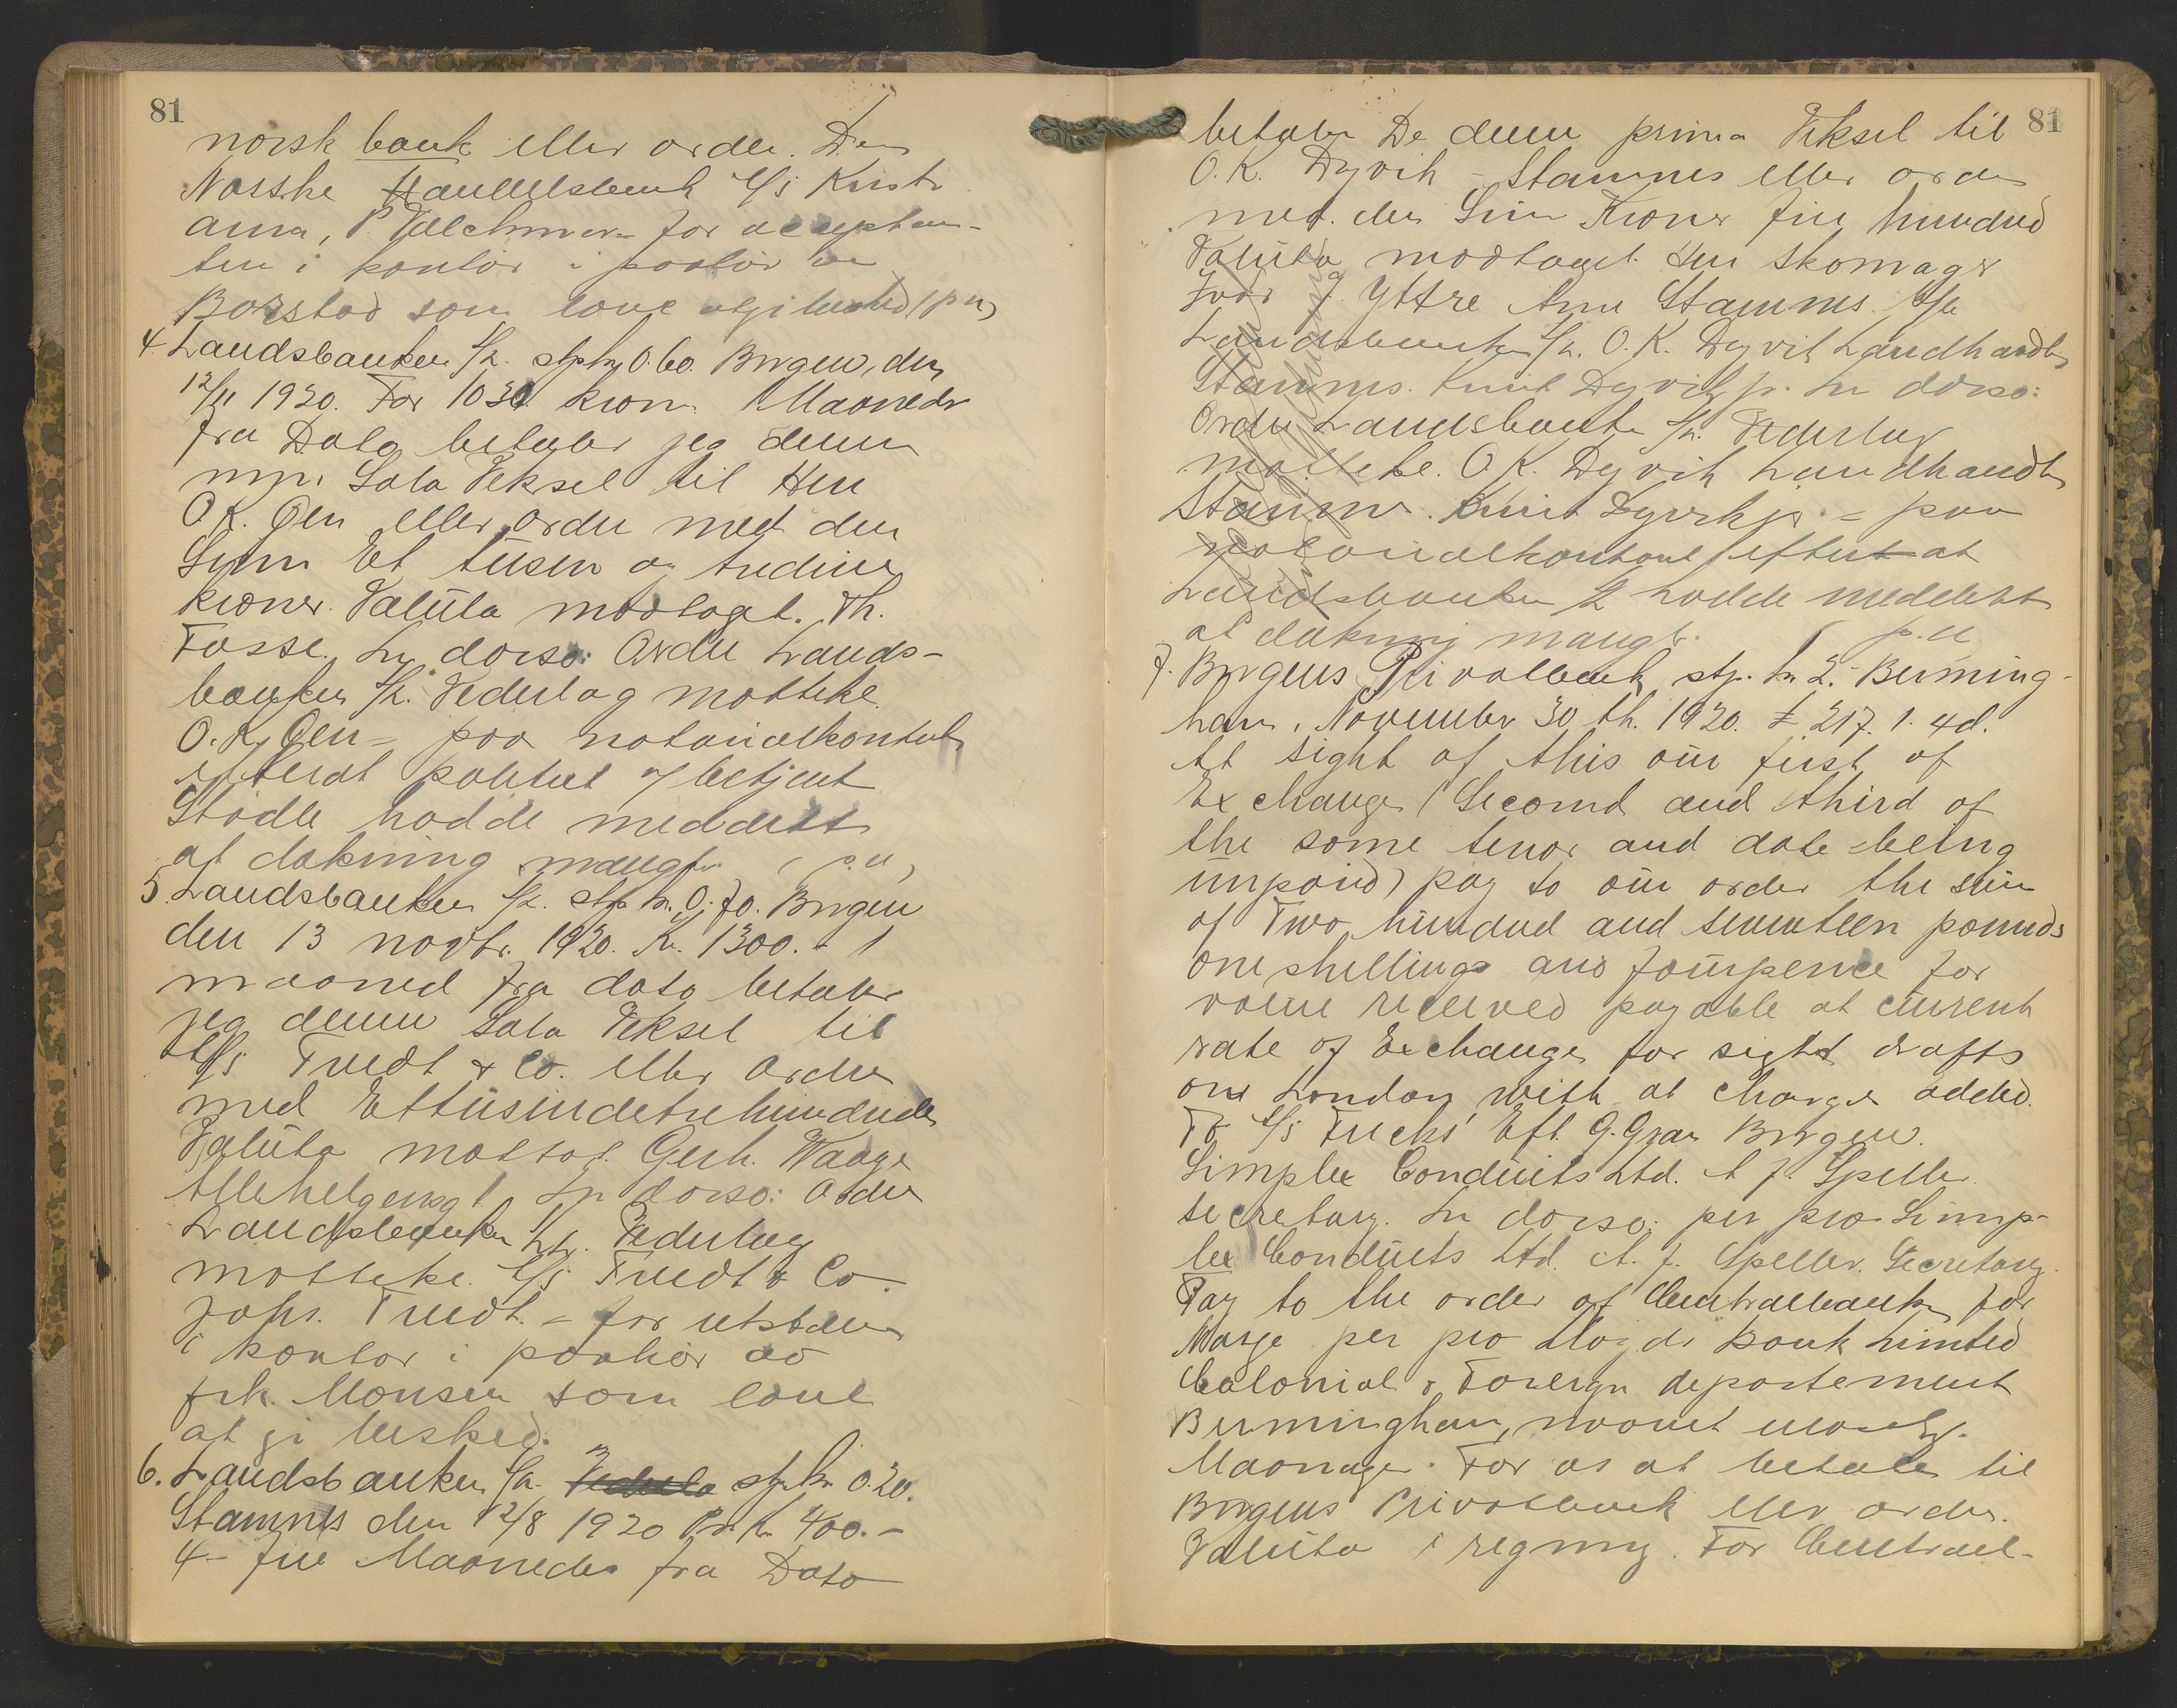 81
norsk bank eller ordre. Den
Norske Handelsbank A/S Kristi
ania, P. Volckmar = for acceptan-
ten i kontor i paahør av
Borstad som lovet at gi besked (p.u)
4. Landsbanken A/L. stp. kr. 0.60. Bergen, den
12/11 1920. For 1030 kron. 1 Maaneder
fra Dato betaler jeg denne
min Sola Veksel til Herr
O. K. Øen eller ordre med den
Sum Et tusen og tredive
kroner. Valuta modtaget. Th.
Fosse. In dorso: Ordre Lands-
banken A/L. Vederlag mottat.
O. K. Øen = paa notarialkontoret
efterat politibetjent
Stødle hadde meddelt
at dækning mangler (p.u)
5. Landsbanken A/L. stp. kr. 0.70. Bergen
den 13 novbr. 1920. Kr. 1300.- 1
maaned fra dato betaler
jeg denne Sola Veksel til
A/S Tvedt & Co. eller Ordre
med Ettusindetrehundrede
Valuta mottat. Gerh. Waage
Allehelgensgt. In dorso: Ordre
Landsbanken A/L. Vederlag
mottat. A/S Tvedt & Co.
Johs. Tvedt. = for utstederen
i kontor i paahør av
frk. Monsen som lovet
at gi besked.
6. Landsbanken A/L. stp. kr. 0.20.
Stamnes den 12/8 1920 Pr. Kr. 400.-
4- fire Maaneder fra Dato
81
betaler De denne prima Veksel til
O. K. Dyvik - Stamnes eller ordre
med den Sum Kroner fire hundred
Valuta modtaget. Herr Skomager
Ivar J. Yttre Arne Stamnes. Til
Landsbanken A/L. O. K. Dyvik Landhandler
Stamnes. Knut Dyvik jr. In dorso:
Ordre Landsbanken A/L. Vederlag
mottat. O. K. Dyvik Landhandler
Stamnes. Knut Dyvik jr. = paa
notarialkontoret efterat
Landsbanken A/L hadde meddelt
at dækning mangler. p.u.
7. Bergens Privatbank stp. kr. 2.- Birming-
ham, November 30 th. 1920. £ 217. 1. 4d.
At sight of this our first of
Exchange (Second and third of
the same tenor and date being
unpaid) pay to our order the sum
of Two hundred and seventeen pounds
one shillings and fourpence for
value received payable at current
rate of Exchange for sight drafts
on London with at charges added.
To A/S Fricks' Eft. G. Gran Bergen.
Simplex Conduits Ltd. A. J. Speller
secretary. In dorso: per pro Simp-
lex Conduits Ltd. A. J. Speller. Secretary.
Pay to the order of Centralbanken for
Norge per pro Lloyds bank Limited
Colonial & Foreign departement
Birmingham,
Maanager. For os at betale til
Bergens Privatbank eller ordre.
Valuta i regning. For Central-